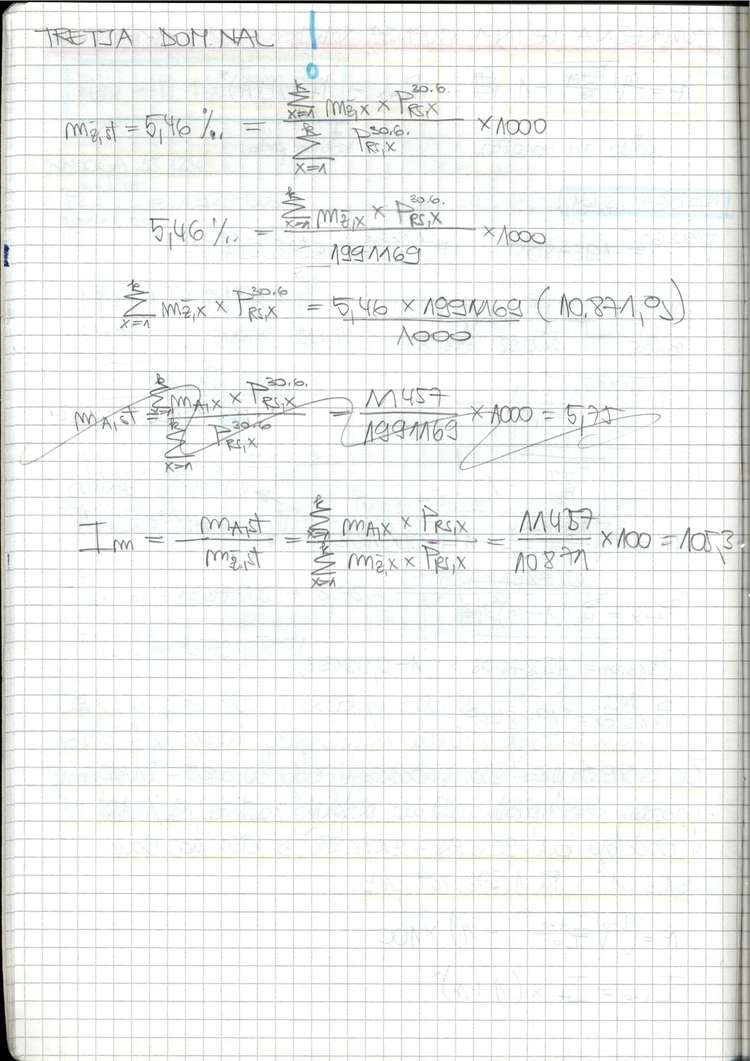 TRETJA DOM. NAL !
m_ž,st = 5,46 ‰ = (∑_{x=1}^{k} m_ž,x × P_RS,x^{30.6.}) / (∑_{x=1}^{k} P_RS,x^{30.6.}) × 1000
5,46 ‰ = (∑_{x=1}^{k} m_ž,x × P_RS,x^{30.6.}) / 1991169 × 1000
∑_{x=1}^{k} m_ž,x × P_RS,x^{30.6} = (5,46 × 1991169) / 1000 (10.871,
m_A,st = (∑_{x=1}^{k} m_A,x × P_RS,x^{30.6.}) / (∑_{x=1}^{k} P_RS,x^{30.6.}) = 11457 / 1991169 × 1000 = 5,75
I_m = m_A,st / m_ž,st = (∑_{x=1}^{k} m_A,x × P_RS,x) / (∑_{x=1}^{k} m_ž,x × P_RS,x) = 11457 / 10871 × 100 = 105,3